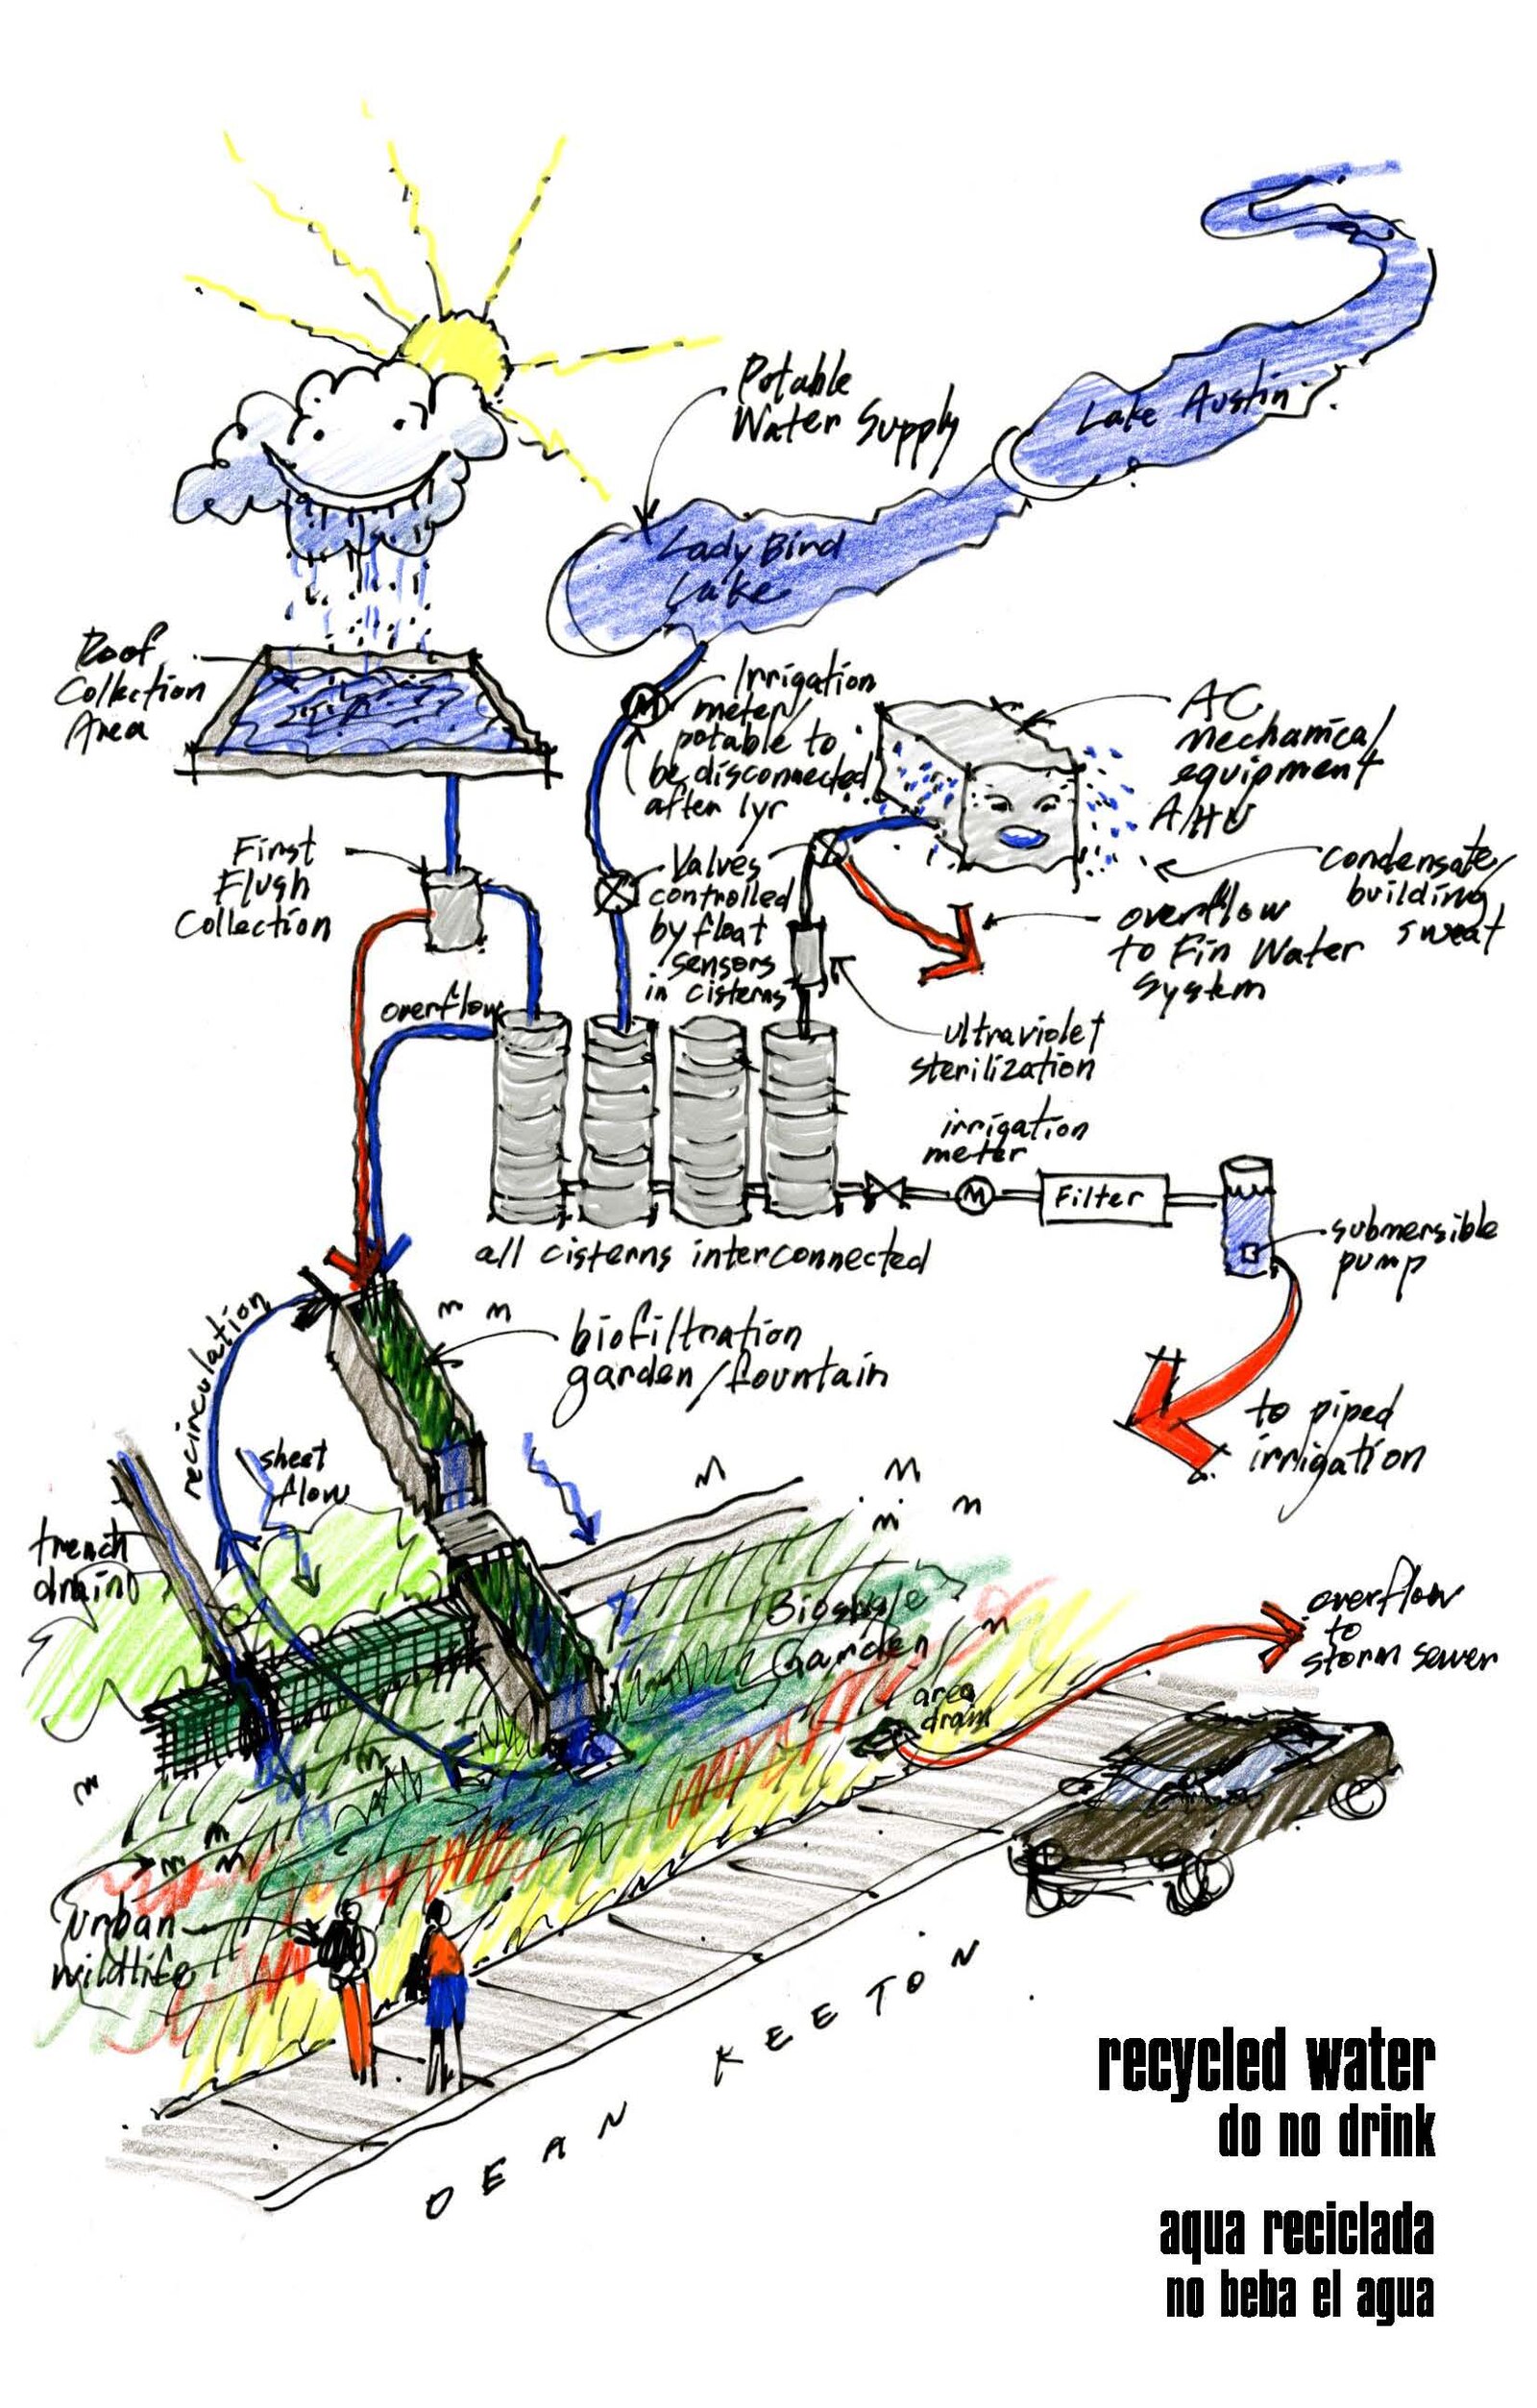 Potable
Water Supply
Lake Austin
Lady Bird
Lake
Roof
Collection
Area
Irrigation
meter/
potable to
be disconnected
after 1yr
AC
mechanical
equipment
AHU
condensate/
building
sweat
First
Flush
Collection
Valves
controlled
by float
sensors
in cisterns
overflow
to Fin Water
System
overflow
ultraviolet
sterilization
irrigation
meter
M
M
Filter
submersible
pump
all cisterns interconnected
recirculation
biofiltration
garden/fountain
to piped
irrigation
sheet
flow
trench
drain
Bioswale
Garden
area
drain
overflow
to
storm sewer
urban
wildlife
DEAN KEETON
recycled water
do no drink
aqua reciclada
no beba el agua